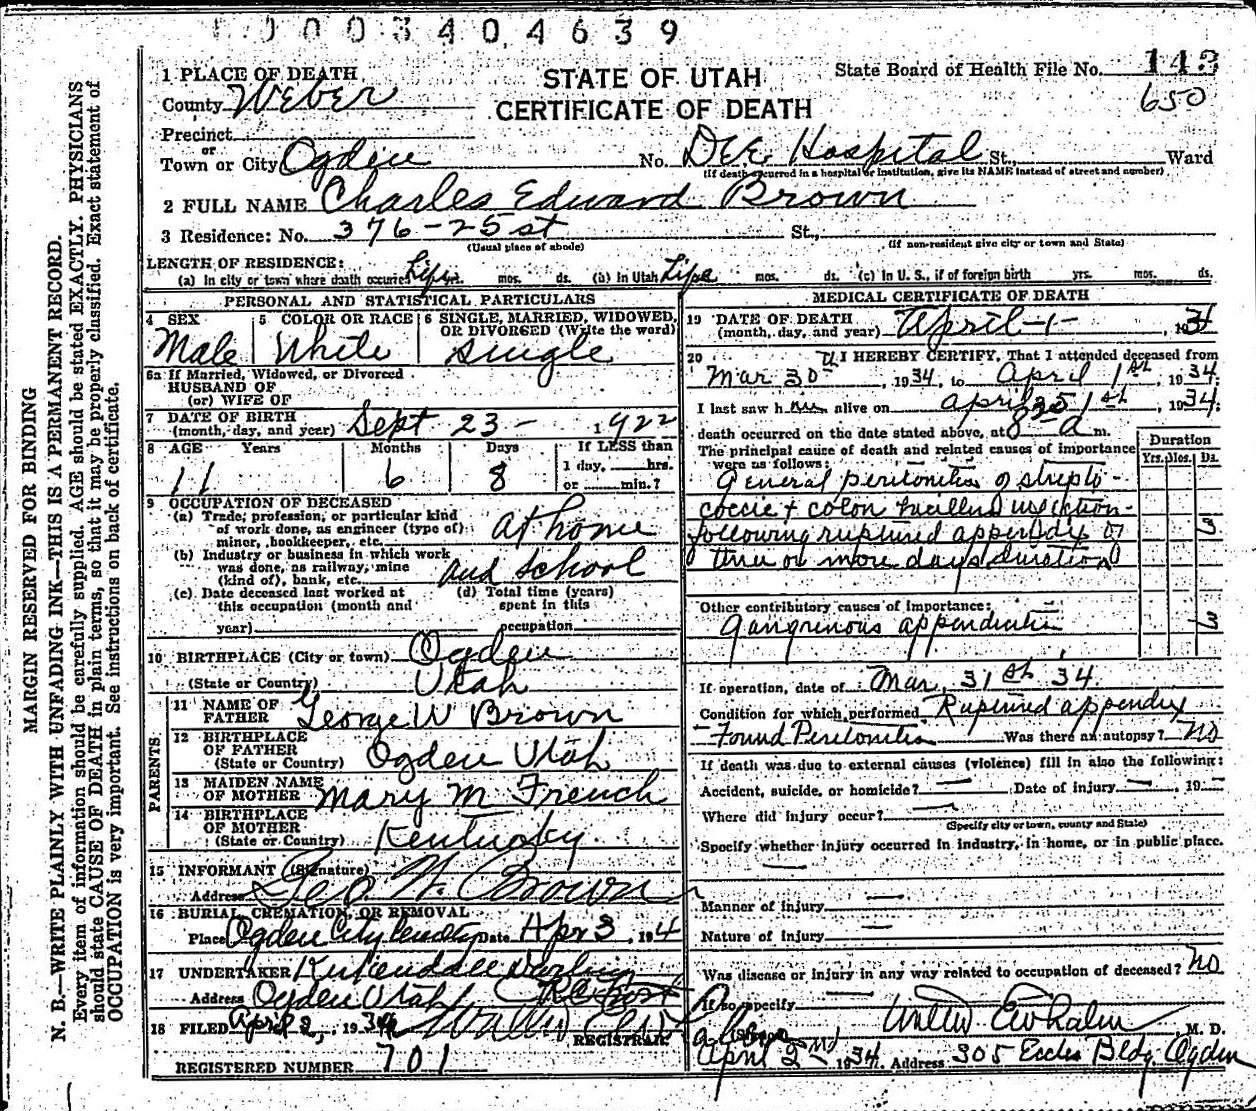 0003404639
1 PLACE OF DEATH
STATE OF UTAH
CERTIFICATE OF DEATH
State Board of Health File No. 143
650
County Weber
Precinct
or
Town or City Ogden No. Dee Hospital St., Ward
(If death occurred in a hospital or institution, give its NAME instead of street and number)
2 FULL NAME Charles Edward Brown
3 Residence: No. 376-25 st St.,
(Usual place of abode) (If non-resident give city or town and State)
LENGTH OF RESIDENCE:
(a) In city or town where death occurred Life yrs. mos. ds. (b) In Utah Life mos. ds. (c) In U. S., if of foreign birth yrs. mos. ds.
PERSONAL AND STATISTICAL PARTICULARS
4 SEX Male
5 COLOR OR RACE White
6 SINGLE, MARRIED, WIDOWED, OR DIVORCED (Write the word) Single
6a If Married, Widowed, or Divorced
HUSBAND OF
(or) WIFE OF
7 DATE OF BIRTH
(month, day, and year) Sept 23- 1922
8 AGE Years Months Days If LESS than
1 day, hrs.
or min.?
11 6 8
9 OCCUPATION OF DECEASED
(a) Trade, profession, or particular kind
of work done, as engineer (type of)
miner, bookkeeper, etc. at home
(b) Industry or business in which work
was done, as railway, mine
(kind of), bank, etc. and school
(c) Date deceased last worked at
this occupation (month and
year)
(d) Total time (years)
spent in this
occupation
10 BIRTHPLACE (City or town) Ogden
(State or Country) Utah
PARENTS
11 NAME OF
FATHER George W Brown
12 BIRTHPLACE
OF FATHER
(State or Country) Ogden Utah
13 MAIDEN NAME
OF MOTHER Mary M French
14 BIRTHPLACE
OF MOTHER
(State or Country) Kentucky
15 INFORMANT (Signature) Geo. W. Brown
Address
16 BURIAL, CREMATION, OR REMOVAL
Place Ogden City Date Apr 3, 194
17 UNDERTAKER Kirkendall Darling
Address Ogden Utah
18 FILED April 2, 1934
REGISTRAR
REGISTERED NUMBER 701
MEDICAL CERTIFICATE OF DEATH
19 DATE OF DEATH
(month, day, and year) April-1-, 1934
20 I HEREBY CERTIFY, That I attended deceased from
Mar 30th, 1934, to April 1st, 1934;
I last saw him alive on April 1st, 1934;
death occurred on the date stated above, at 8 35 a m.
The principal cause of death and related causes of importance
were as follows:
Duration
Yrs. Mos. Da.
General peritonitis of strepto-
coccic + colon bacillus infection
following ruptured appendix of 3
three or more days duration
Other contributory causes of importance:
gangrenous appendicitis 3
If operation, date of Mar, 31st 34.
Condition for which performed Ruptured appendix
Found Peritonitis Was there an autopsy? No
If death was due to external causes (violence) fill in also the following:
Accident, suicide, or homicide? — Date of injury — 19—
Where did injury occur? —
(Specify city or town, county and State)
Specify whether injury occurred in industry, in home, or in public place.
—
Manner of injury —
Nature of injury —
Was disease or injury in any way related to occupation of deceased? No
If so specify —
(Signed) , M. D.
April 2nd 1934. Address 305 Eccles Bldg. Ogden
MARGIN RESERVED FOR BINDING
N. B.—WRITE PLAINLY WITH UNFADING INK—THIS IS A PERMANENT RECORD.
Every item of information should be carefully supplied. AGE should be stated EXACTLY. PHYSICIANS
should state CAUSE OF DEATH in plain terms, so that it may be properly classified. Exact statement of
OCCUPATION is very important. See instructions on back of certificate.